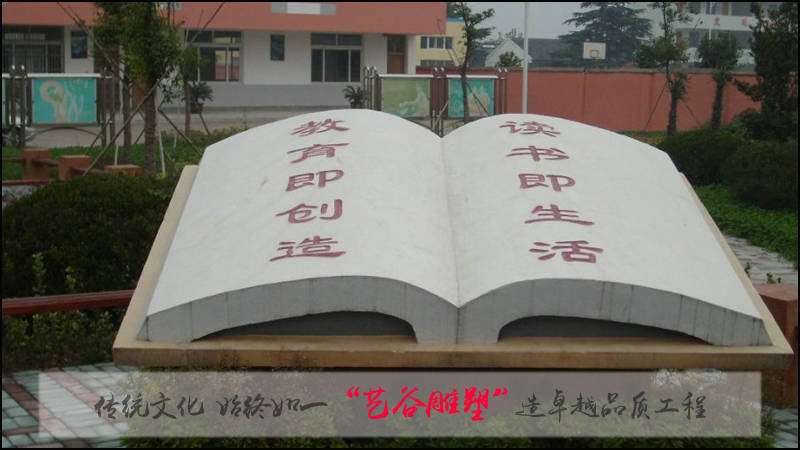 教育即创造
读书即生活
传统文化 始终如一“艺谷雕塑”造卓越品质工程